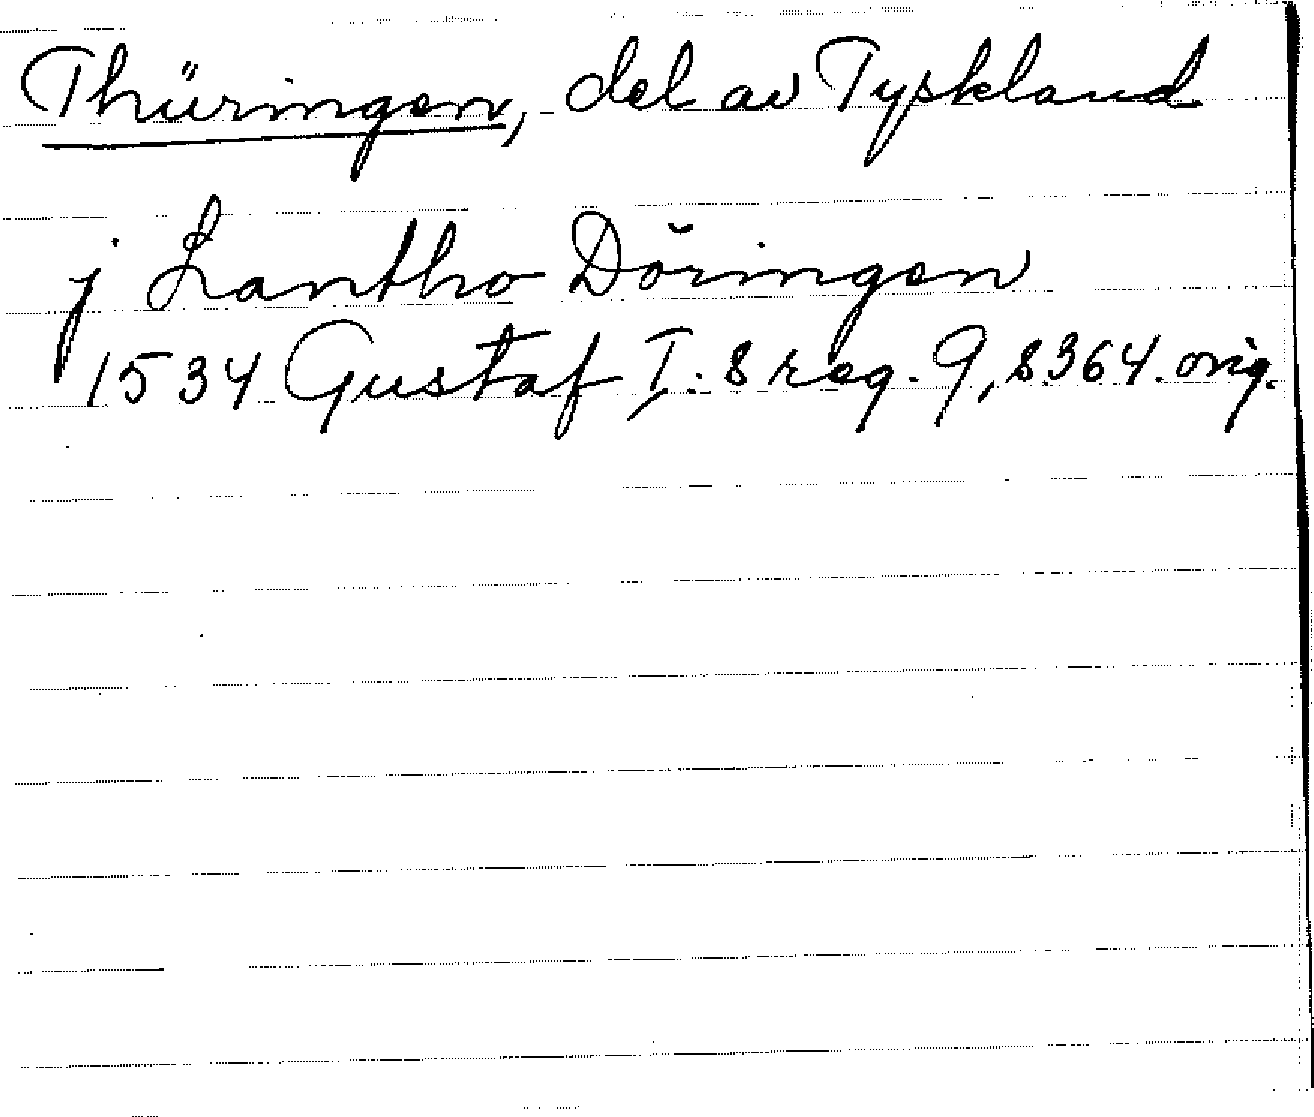 Thüringen, del av Tyskland
j Lantho Döringen
1534 Gustaf I:s reg. 9, s 364. orig.